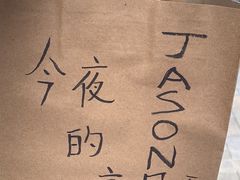 今夜
的
JASON